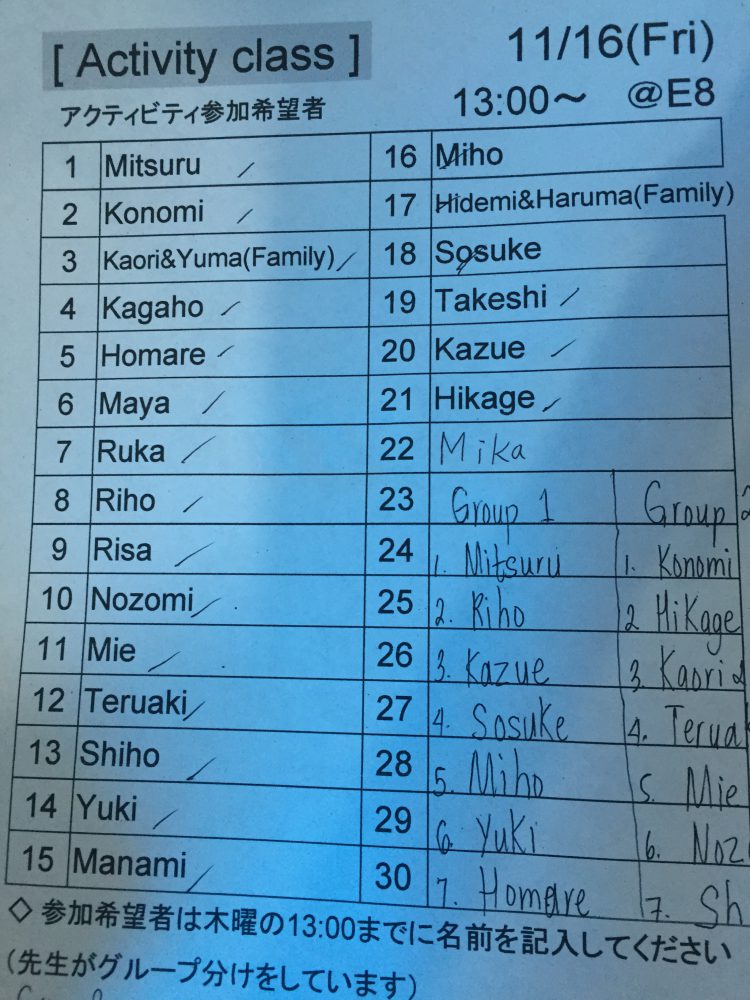 [ Activity class ] 11/16(Fri)
アクティビティ参加希望者 13:00～ @E8
1 Mitsuru 16 Miho
2 Konomi 17 Hidemi&Haruma(Family)
3 Kaori&Yuma(Family) 18 Sosuke
4 Kagaho 19 Takeshi
5 Homare 20 Kazue
6 Maya 21 Hikage
7 Ruka 22 Mika
8 Riho 23 Group 1 Group 2
9 Risa 24 1. Mitsuru 1. Konomi
10 Nozomi 25 2. Riho 2 Hikage
11 Mie 26 3. Kazue 3. Kaori &
12 Teruaki 27 4. Sosuke 4. Terua
13 Shiho 28 5. Miho 5. Mie
14 Yuki 29 6 Yuki 6. Noz
15 Manami 30 7. Homare 7. Sh
◇ 参加希望者は木曜の13:00までに名前を記入してください
(先生がグループ分けをしています)